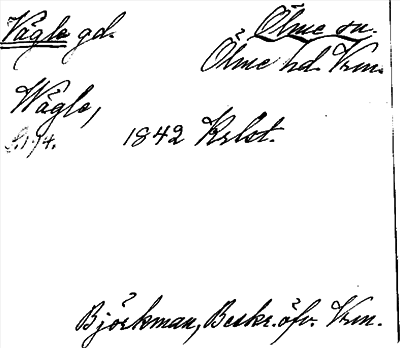 Vågle gd. Ölme sn.
Ölme hd. Vrm.
Wågle,
s. 174. 1842 Krlot.
Björkman, Beskr. öfv. Vrm.